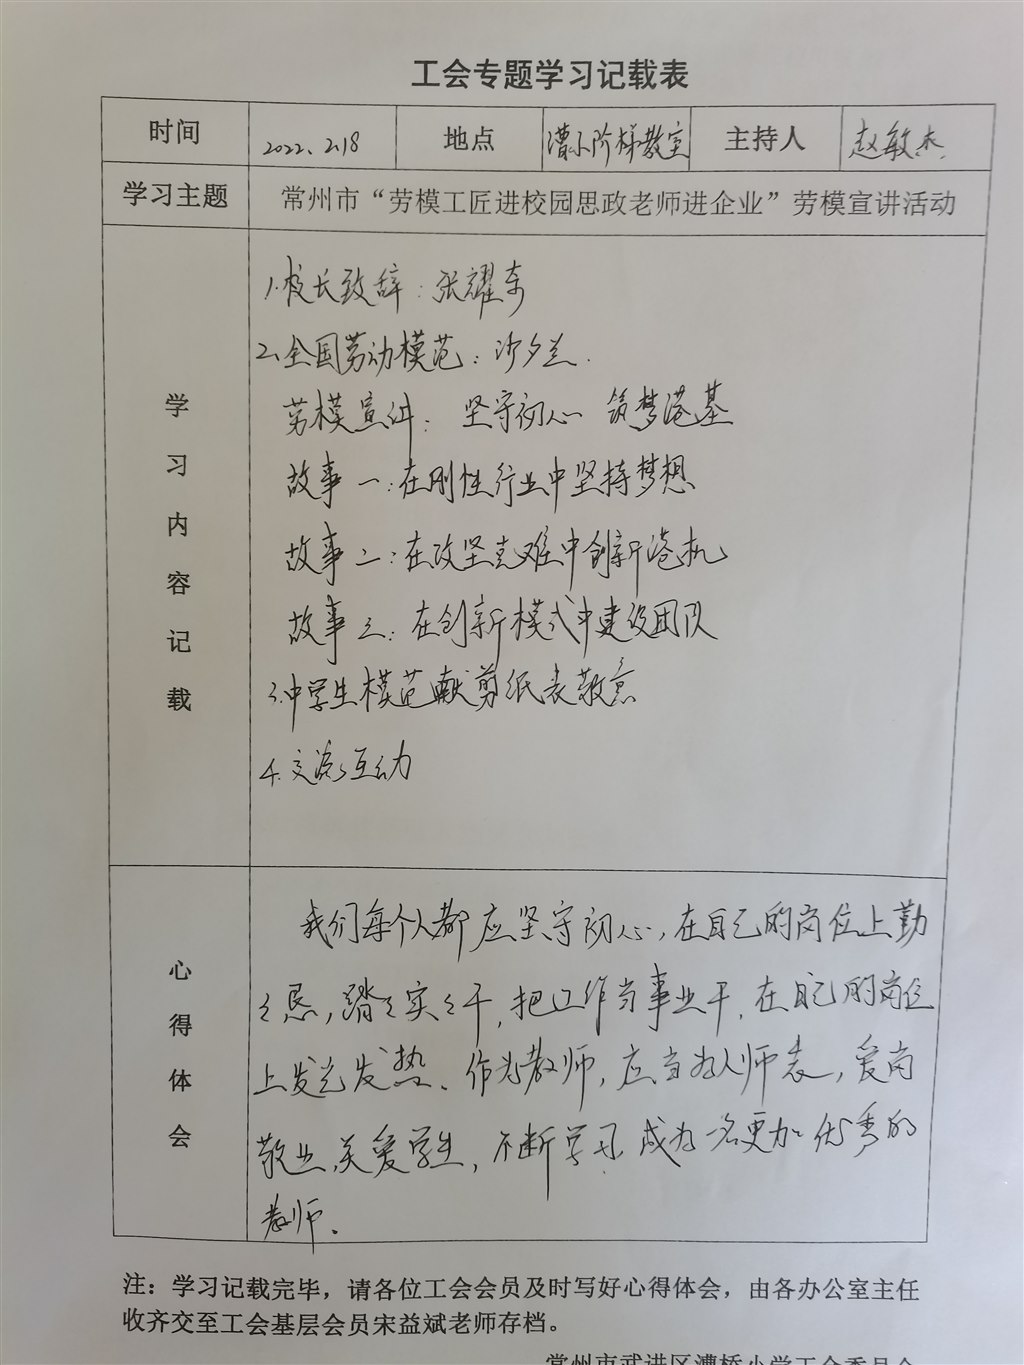 工会专题学习记载表
时间 2022、2.18 地点 漕小阶梯教室 主持人 赵敏杰
学习主题 常州市“劳模工匠进校园思政老师进企业”劳模宣讲活动
学习内容记载
1.校长致辞：张耀东
2、全国劳动模范：沙夕兰.
劳模宣讲：坚守初心 筑梦港基
故事一：在刚性行业中坚持梦想
故事二：在攻坚克难中创新港机
故事三：在创新模式中建设团队
3.中学生模范献剪纸表敬意
4.交流互动
心得体会
我们每个人都应坚守初心，在自己的岗位上勤
勤恳恳，踏踏实实干，把工作当事业干，在自己的岗位
上发光发热、作为教师，应当为人师表，爱岗
敬业，关爱学生，不断学习，成为一名更加优秀的
教师。
注：学习记载完毕，请各位工会会员及时写好心得体会，由各办公室主任
收齐交至工会基层会员宋益斌老师存档。
常州市武进区漕桥小学工会委员会